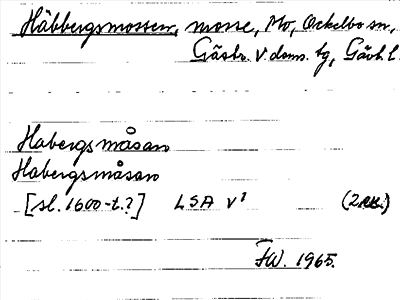 Häbbergsmossen, mosse, Mo, Ockelbo sn,
Gästr. V. doms. tg, Gävl. l.
Habergsmåsan
Habergsmåsan
[sl. 1600-t.?] LSA V¹ (2 ex.)
FW. 1965.